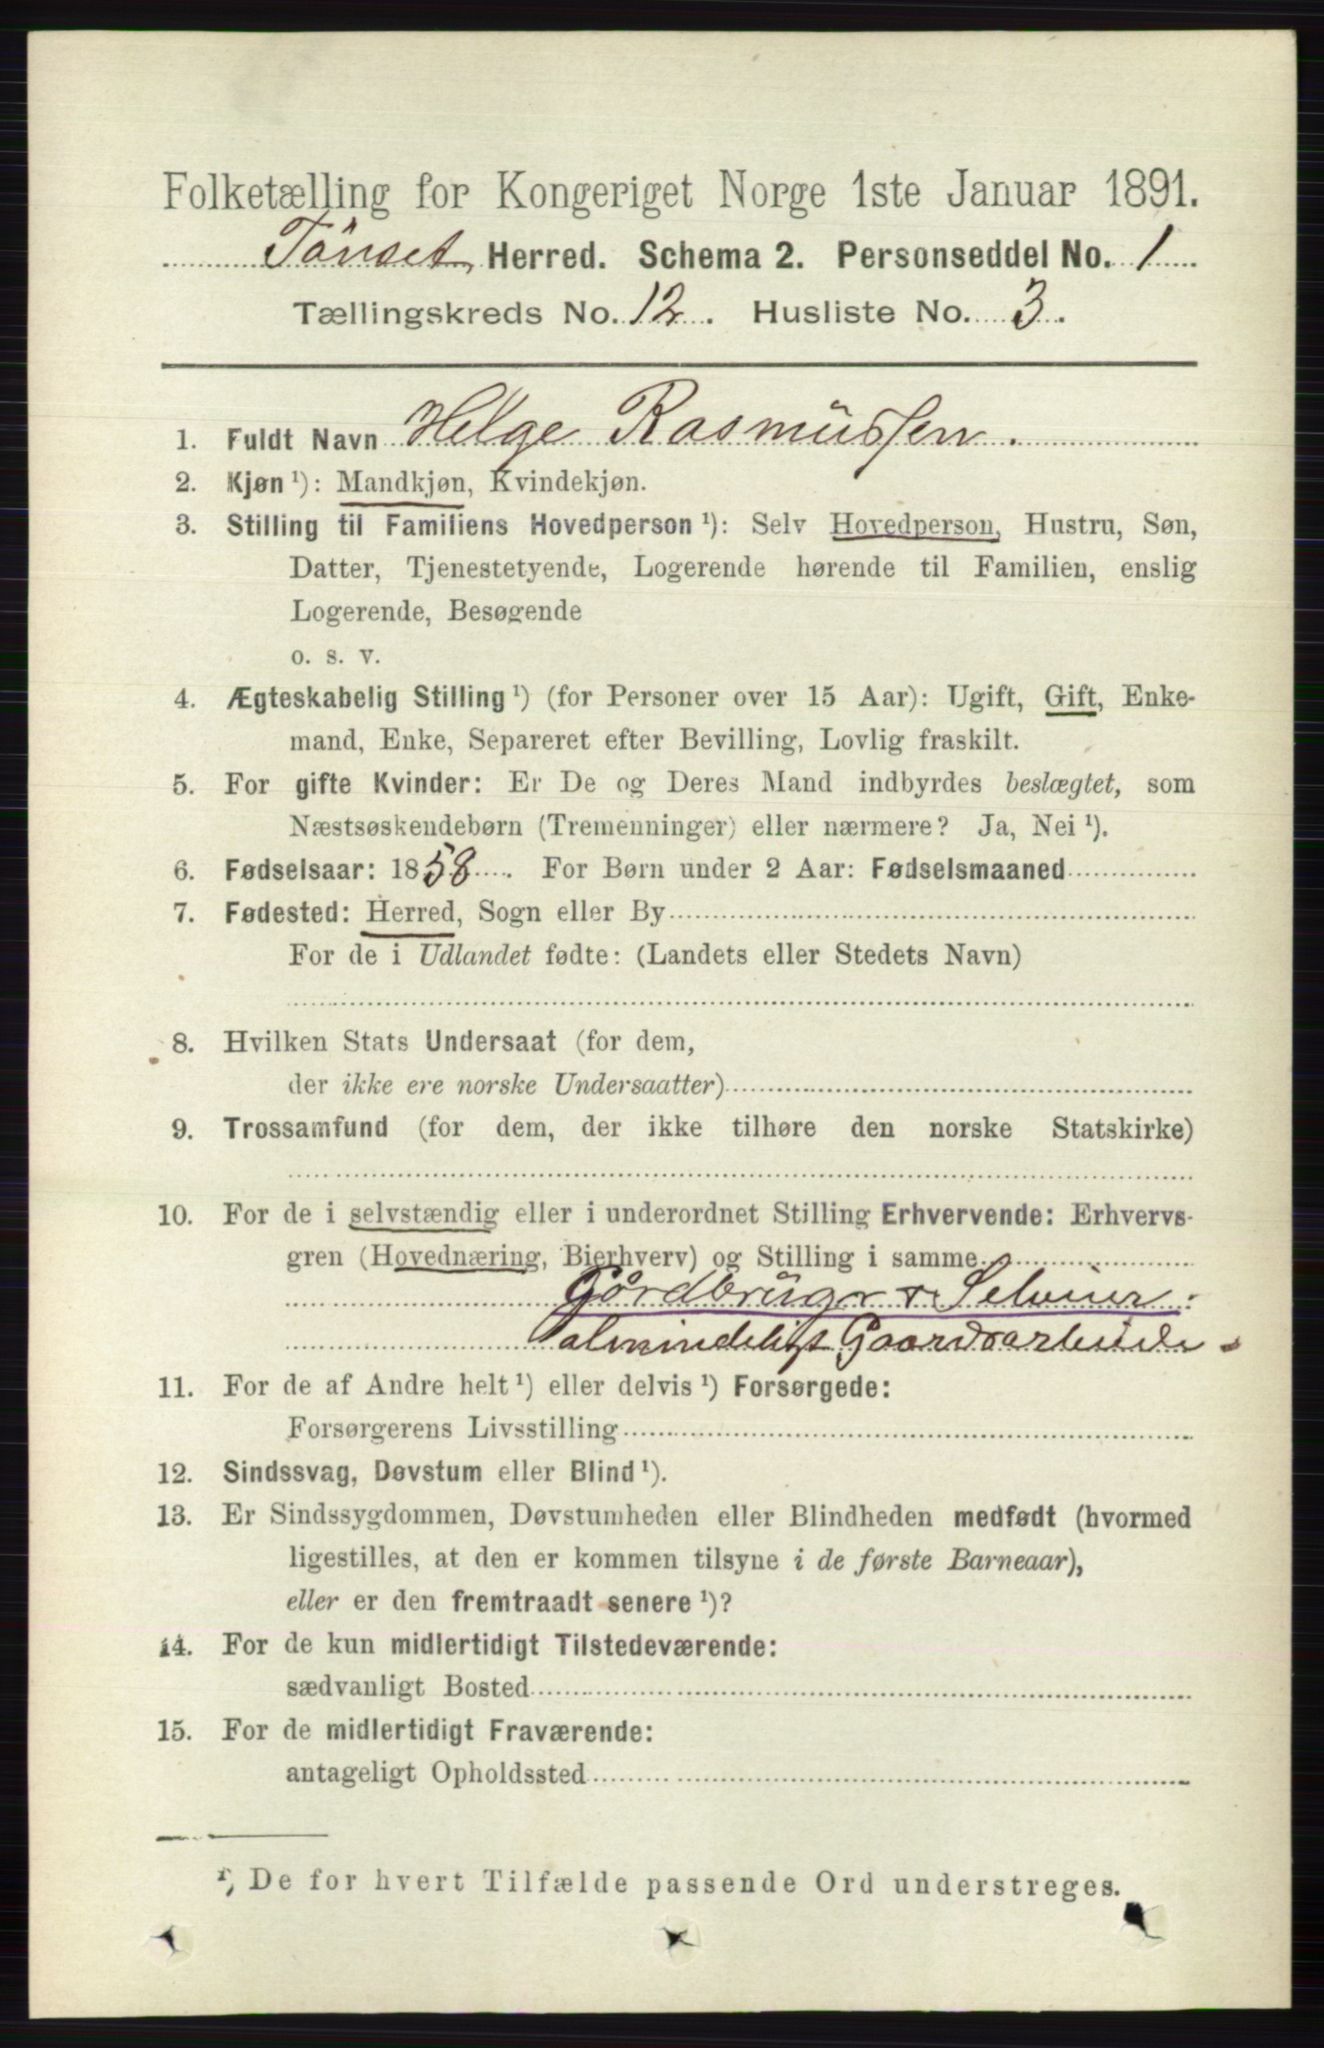 Folketælling for Kongeriget Norge 1ste Januar 1891.
Tönset Herred. Schema 2. Personseddel No. 1
Tællingskreds No. 12. Husliste No. 3.
1. Fuldt Navn Helge Rasmüssen.
2. Kjøn ¹): Mandkjøn, Kvindekjøn.
3. Stilling til Familiens Hovedperson ¹): Selv Hovedperson, Hustru, Søn,
Datter, Tjenestetyende, Logerende hørende til Familien, enslig
Logerende, Besøgende
o. s. v.
4. Ægteskabelig Stilling ¹) (for Personer over 15 Aar): Ugift, Gift, Enke-
mand, Enke, Separeret efter Bevilling, Lovlig fraskilt.
5. For gifte Kvinder: Er De og Deres Mand indbyrdes beslægtet, som
Næstsøskendebørn (Tremenninger) eller nærmere? Ja, Nei ¹).
6. Fødselsaar: 1858. For Børn under 2 Aar: Fødselsmaaned
7. Fødested: Herred, Sogn eller By
For de i Udlandet fødte: (Landets eller Stedets Navn)
8. Hvilken Stats Undersaat (for dem,
der ikke ere norske Undersaatter)
9. Trossamfund (for dem, der ikke tilhøre den norske Statskirke)
10. For de i selvstændig eller i underordnet Stilling Erhvervende: Erhvervs-
gren (Hovednæring, Bierhverv) og Stilling i samme
Gårdbrüger + Seleier
almindeligt Gaardsarbeide
11. For de af Andre helt ¹) eller delvis ¹) Forsørgede:
Forsørgerens Livsstilling
12. Sindssvag, Døvstum eller Blind ¹).
13. Er Sindssygdommen, Døvstumheden eller Blindheden medfødt (hvormed
ligestilles, at den er kommen tilsyne i de første Barneaar),
eller er den fremtraadt senere ¹)?
14. For de kun midlertidigt Tilstedeværende:
sædvanligt Bosted
15. For de midlertidigt Fraværende:
antageligt Opholdssted
¹) De for hvert Tilfælde passende Ord understreges.